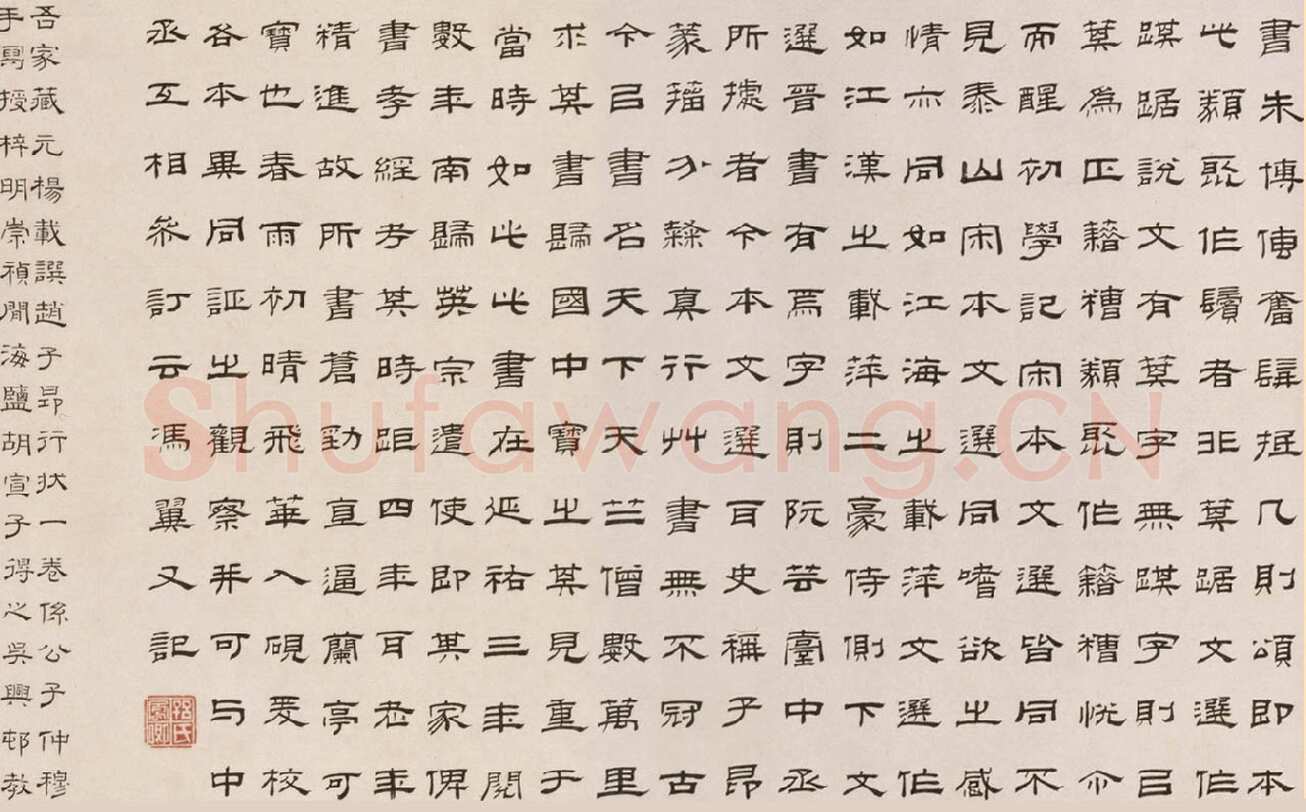 書朱博傳奮髯抵几則頌即本
此類聚作鬢者非萁踞文選作
踑踞說文有萁字無踑字則已
萁為正籍糟類聚作籍糟恍尒
而醒初學記宋本文選皆同不
見泰山宋本文選同嗜欲之感
情亦同如江海之載萍文選作
如江漢之載萍二豪侍側下文
選晉書有焉字則阮芸臺中丞
所據者今本文選耳史稱子昂
篆籀分隸真行艸書無不冠古
今已書名天下天竺僧數萬里
求其書歸國中寶之其見重于
當時如此此書在延祐三年閱
數年南歸英宗遣使即其家俾
書孝經考其時距四年耳老年
精進故所書蒼勁直逼蘭亭可
寶也春雨初晴飛華入硯爰校
各本異同証之觀察并可与中
丞互相參訂云馮翼又記
吾家藏元楊載譔趙子昂行狀一卷係公子仲穆
手寫授梓明崇禎間海鹽胡宣子得之吳興邨教
Shufawang.CN